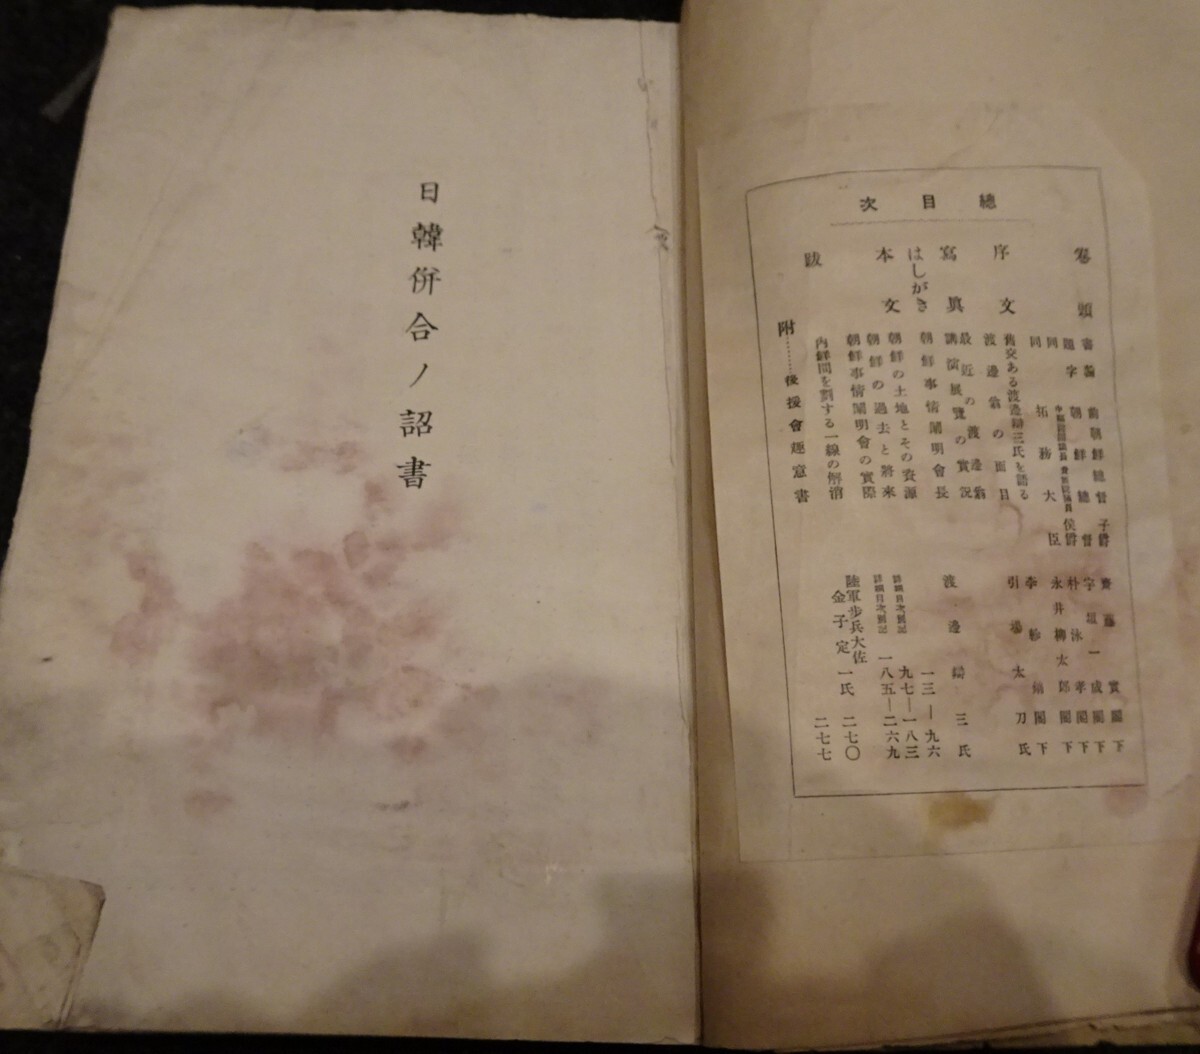 總目次
卷頭
書翰 前朝鮮總督 子爵 齋藤實閣下
題字 朝鮮總督 宇垣一成閣下
同 侯爵 朴泳孝閣下
同 拓務大臣 永井柳太郎閣下
閣下
序文
舊交ある渡邊辯三氏を語る 引場太刀氏
渡邊翁の面目
寫眞
最近の渡邊翁
講演展覽の實況
はしがき
朝鮮事情闡明會長 渡邊辯三氏
本文
朝鮮の土地とその資源 詳細目次別記 一三―九六
朝鮮の過去と將來 詳細目次別記 九七―一八三
朝鮮事情闡明會の實際 一八五―二六九
跋
內鮮間を劃する一線の解消 陸軍步兵大佐 金子定一氏 二七〇
附………後援會趣意書 二七七
日韓併合ノ詔書